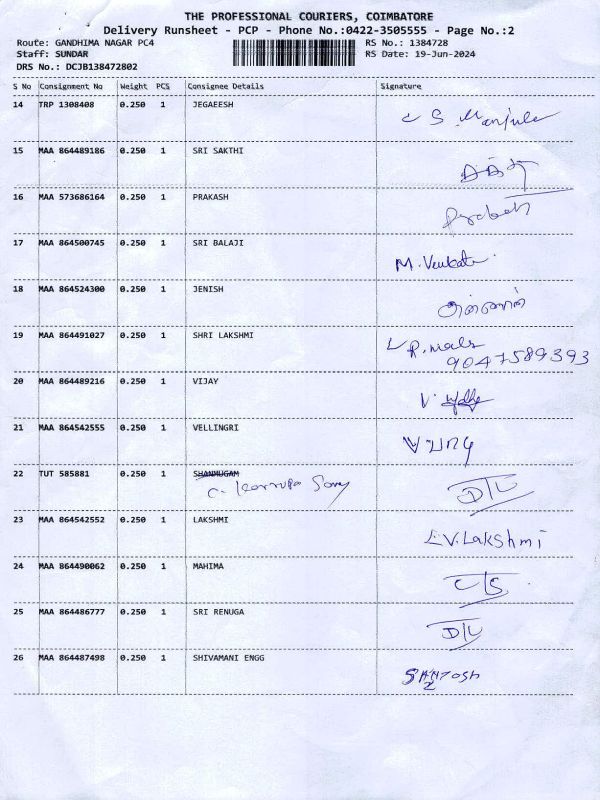 THE PROFESSIONAL COURIERS, COIMBATORE
Delivery Runsheet - PCP - Phone No.:0422-3505555 - Page No.:2
Route: GANDHIMA NAGAR PC4 RS No.: 1384728
Staff: SUNDAR RS Date: 19-Jun-2024
DRS No.: DCJB138472802
S No Consignment No Weight PCS Consignee Details Signature
14 TRP 1308408 0.250 1 JEGAEESH S. Manjula
15 MAA 864489186 0.250 1 SRI SAKTHI
16 MAA 573686164 0.250 1 PRAKASH
17 MAA 864500745 0.250 1 SRI BALAJI M. Venkate
18 MAA 864524300 0.250 1 JENISH
19 MAA 864491027 0.250 1 SHRI LAKSHMI
9047589393
20 MAA 864489216 0.250 1 VIJAY
21 MAA 864542555 0.250 1 VELLINGRI
22 TUT 585881 0.250 1 SHANMUGAM D/L
23 MAA 864542552 0.250 1 LAKSHMI V.Lakshmi
24 MAA 864490062 0.250 1 MAHIMA C/S
25 MAA 864486777 0.250 1 SRI RENUGA D/L
26 MAA 864487498 0.250 1 SHIVAMANI ENGG SANTOSH